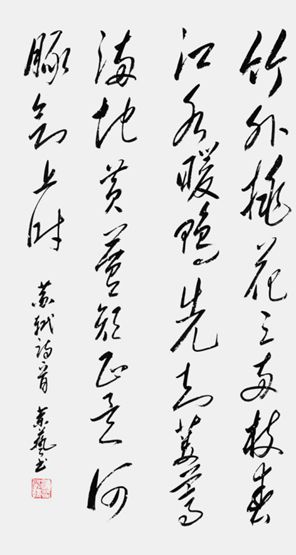 竹外桃花三两枝春
江水暖鸭先知蒌蒿
满地黄芦短正是河
豚欲上时
苏轼诗一首 艺书